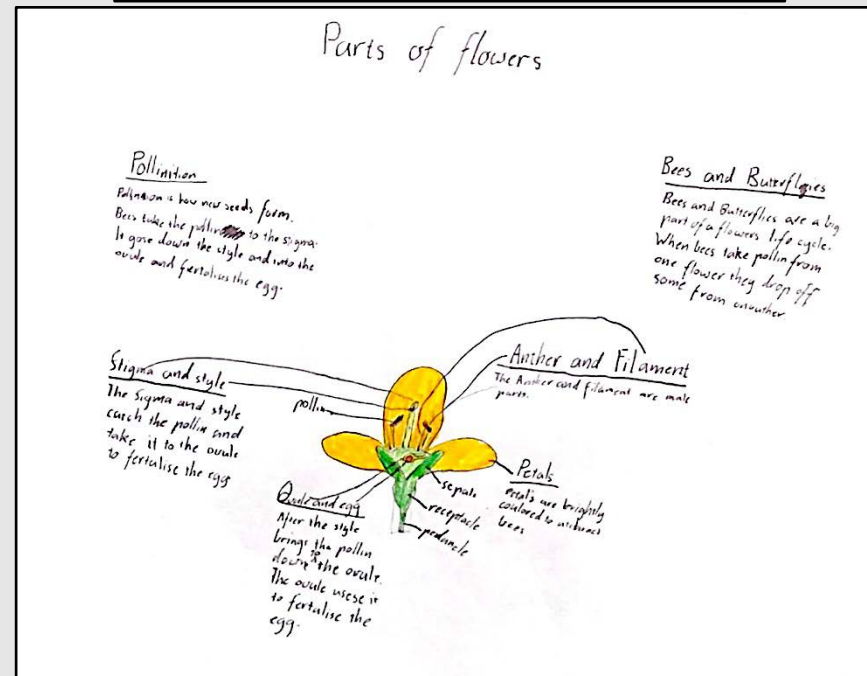 Parts of flowers
Pollinition
Pollination is how new seeds form.
Bees take the pollin to the stigma.
It gose down the style and into the
ovule and fertalises the egg.
Bees and Butterflies
Bees and Butterflies are a big
part of a flowers life cycle.
When bees take pollin from
one flower they drop off
some from onouther.
Stigma and style
The Sigma and style
catch the pollin and
take it to the ovule
to fertulise the egg
pollin
Anther and Filament
The Anther and filament are male
parts.
Petals
petals are brightly
coulored to
bees
sepals
receptacle
peduncle
Ovule and egg
After the style
brings the pollin
down to the ovule.
The ovule usese it
to fertulise the
egg.